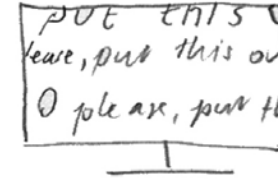 put this
lease, put this ou
O please, put th